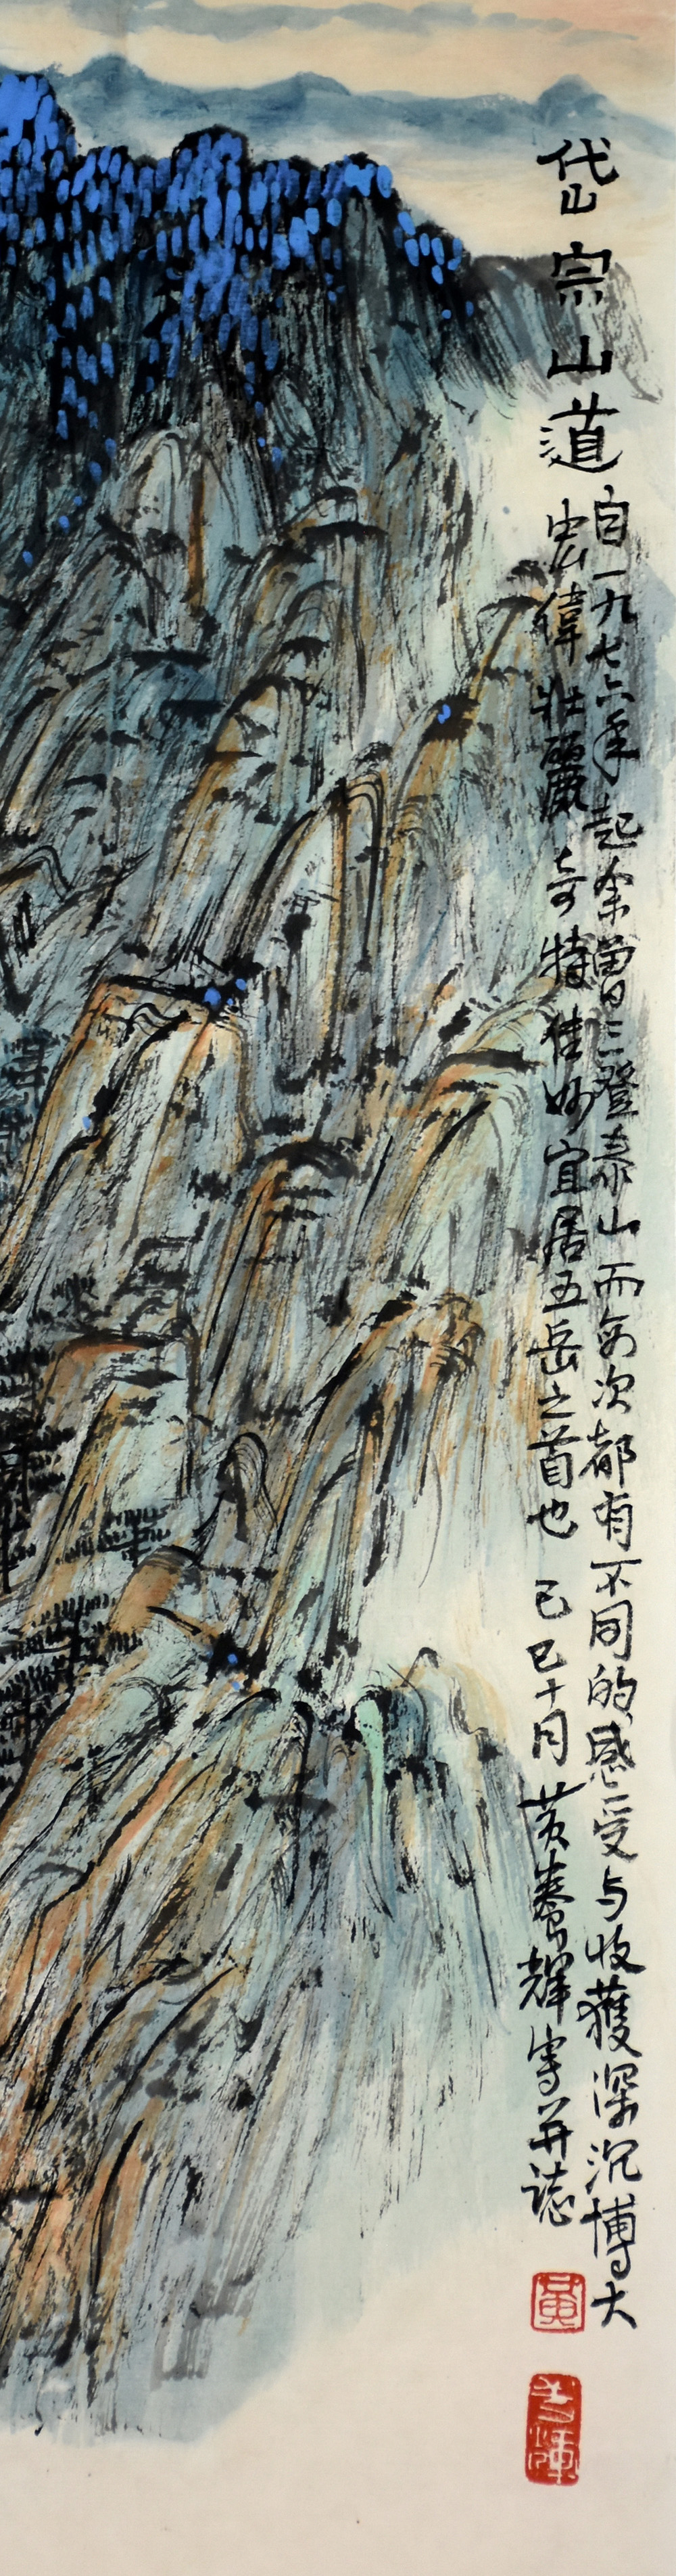 岱宗山道
自一九七六年起余曾三登泰山而每次都有不同的感受与收獲深沉博大
宏偉壯麗奇特佳妙宜居五岳之首也 己巳十月 黄養輝写并誌
黄
养輝